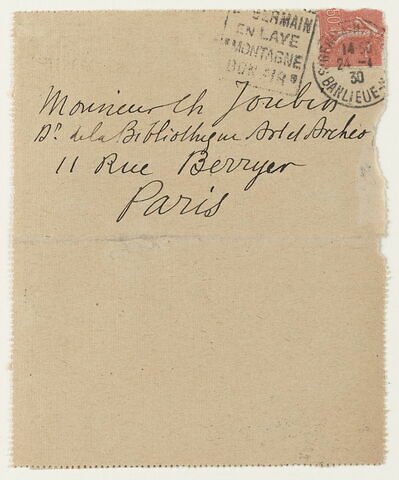 GERMAIN
EN LAYE
"MONTAGNE
BON AIR"
50c
14
24 - 4
30
BANLIEUE
Monsieur Ch Joubin
Dr de la Bibliothèque Art et Archéo
11 Rue Berryer
Paris